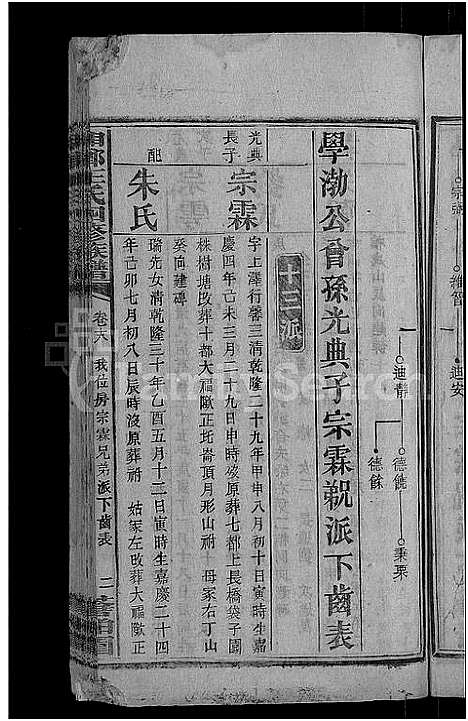 宗
維智
迪安
迪靜
德饒
德餘
秉栗
學渤公曾孫光典子宗霖覜派下齒表
十三派
光典長子
宗霖
字上澤行馨三清乾隆二十九年甲申八月初十日寅時生嘉
慶四年己未三月二十九日申時歿原葬七都上長橋袋子園
株樹塘改葬十都大福歐正圫崙頂月形山祔 母冢右丁山
癸向建磚
配
朱氏
瑞先女清乾隆三十年乙酉五月十三日寅時生嘉慶二十四
年己卯七月初八日辰時歿原葬祔 姑冢左改葬大福歐正
湘鄉王氏四修族譜
卷六 我位房宗霖兄弟派下齒表
二